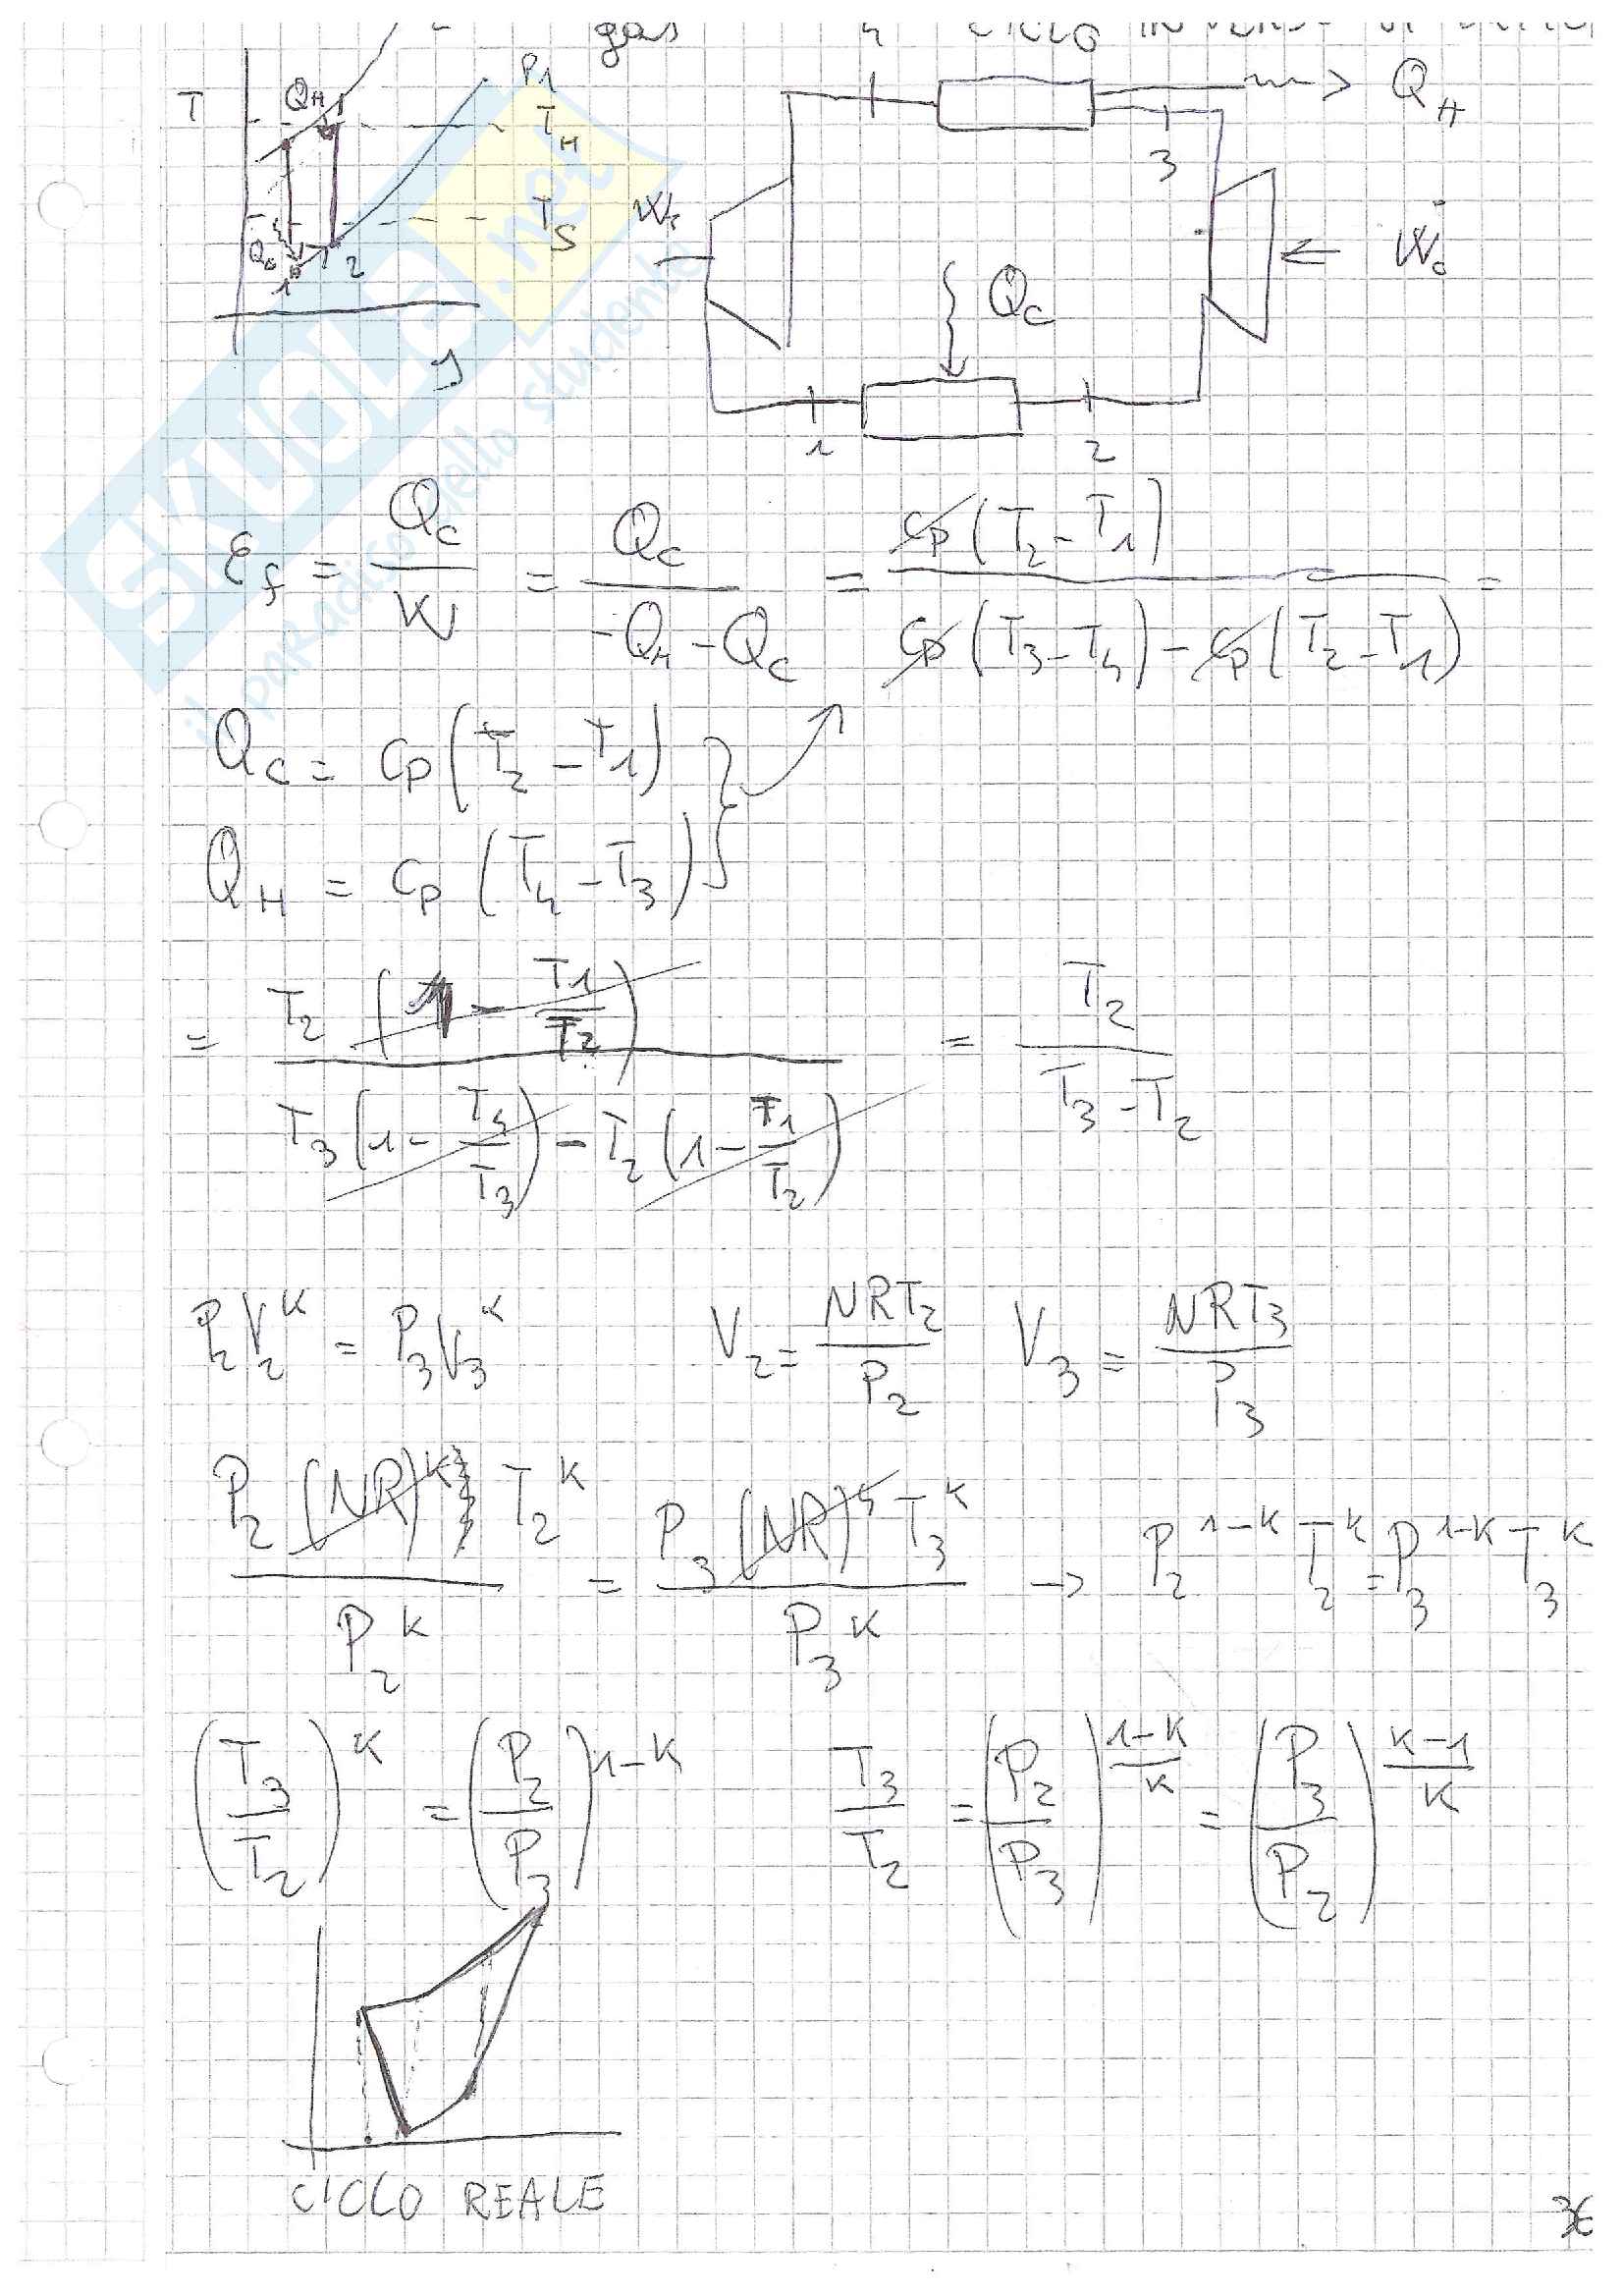 gas 4 CICLO INVERSO DI
T QH P1 TH
TS
QC 1 2
S
QH
3
QC
1 2
εf = QC / W = QC / (-QH - QC) = cp (T2 - T1) / (cp (T3 - T4) - cp (T2 - T1)) =
QC = cp (T2 - T1)
QH = cp (T4 - T3)
= T2 (1 - T1/T2) / (T3 (1 - T4/T3) - T2 (1 - T1/T2)) = T2 / (T3 - T2)
P2V2^K = P3V3^K V2 = NRT2 / P2 V3 = NRT3 / P3
P2 (NR)^K T2^K / P2^K = P3 (NR)^K T3^K / P3^K → P2^1-K T2^K = P3^1-K T3^K
(T3/T2)^K = (P2/P3)^1-K T3/T2 = (P2/P3)^(1-K)/K = (P3/P2)^(K-1)/K
CICLO REALE
36
SKUOLA.net
il paradiso dello studente